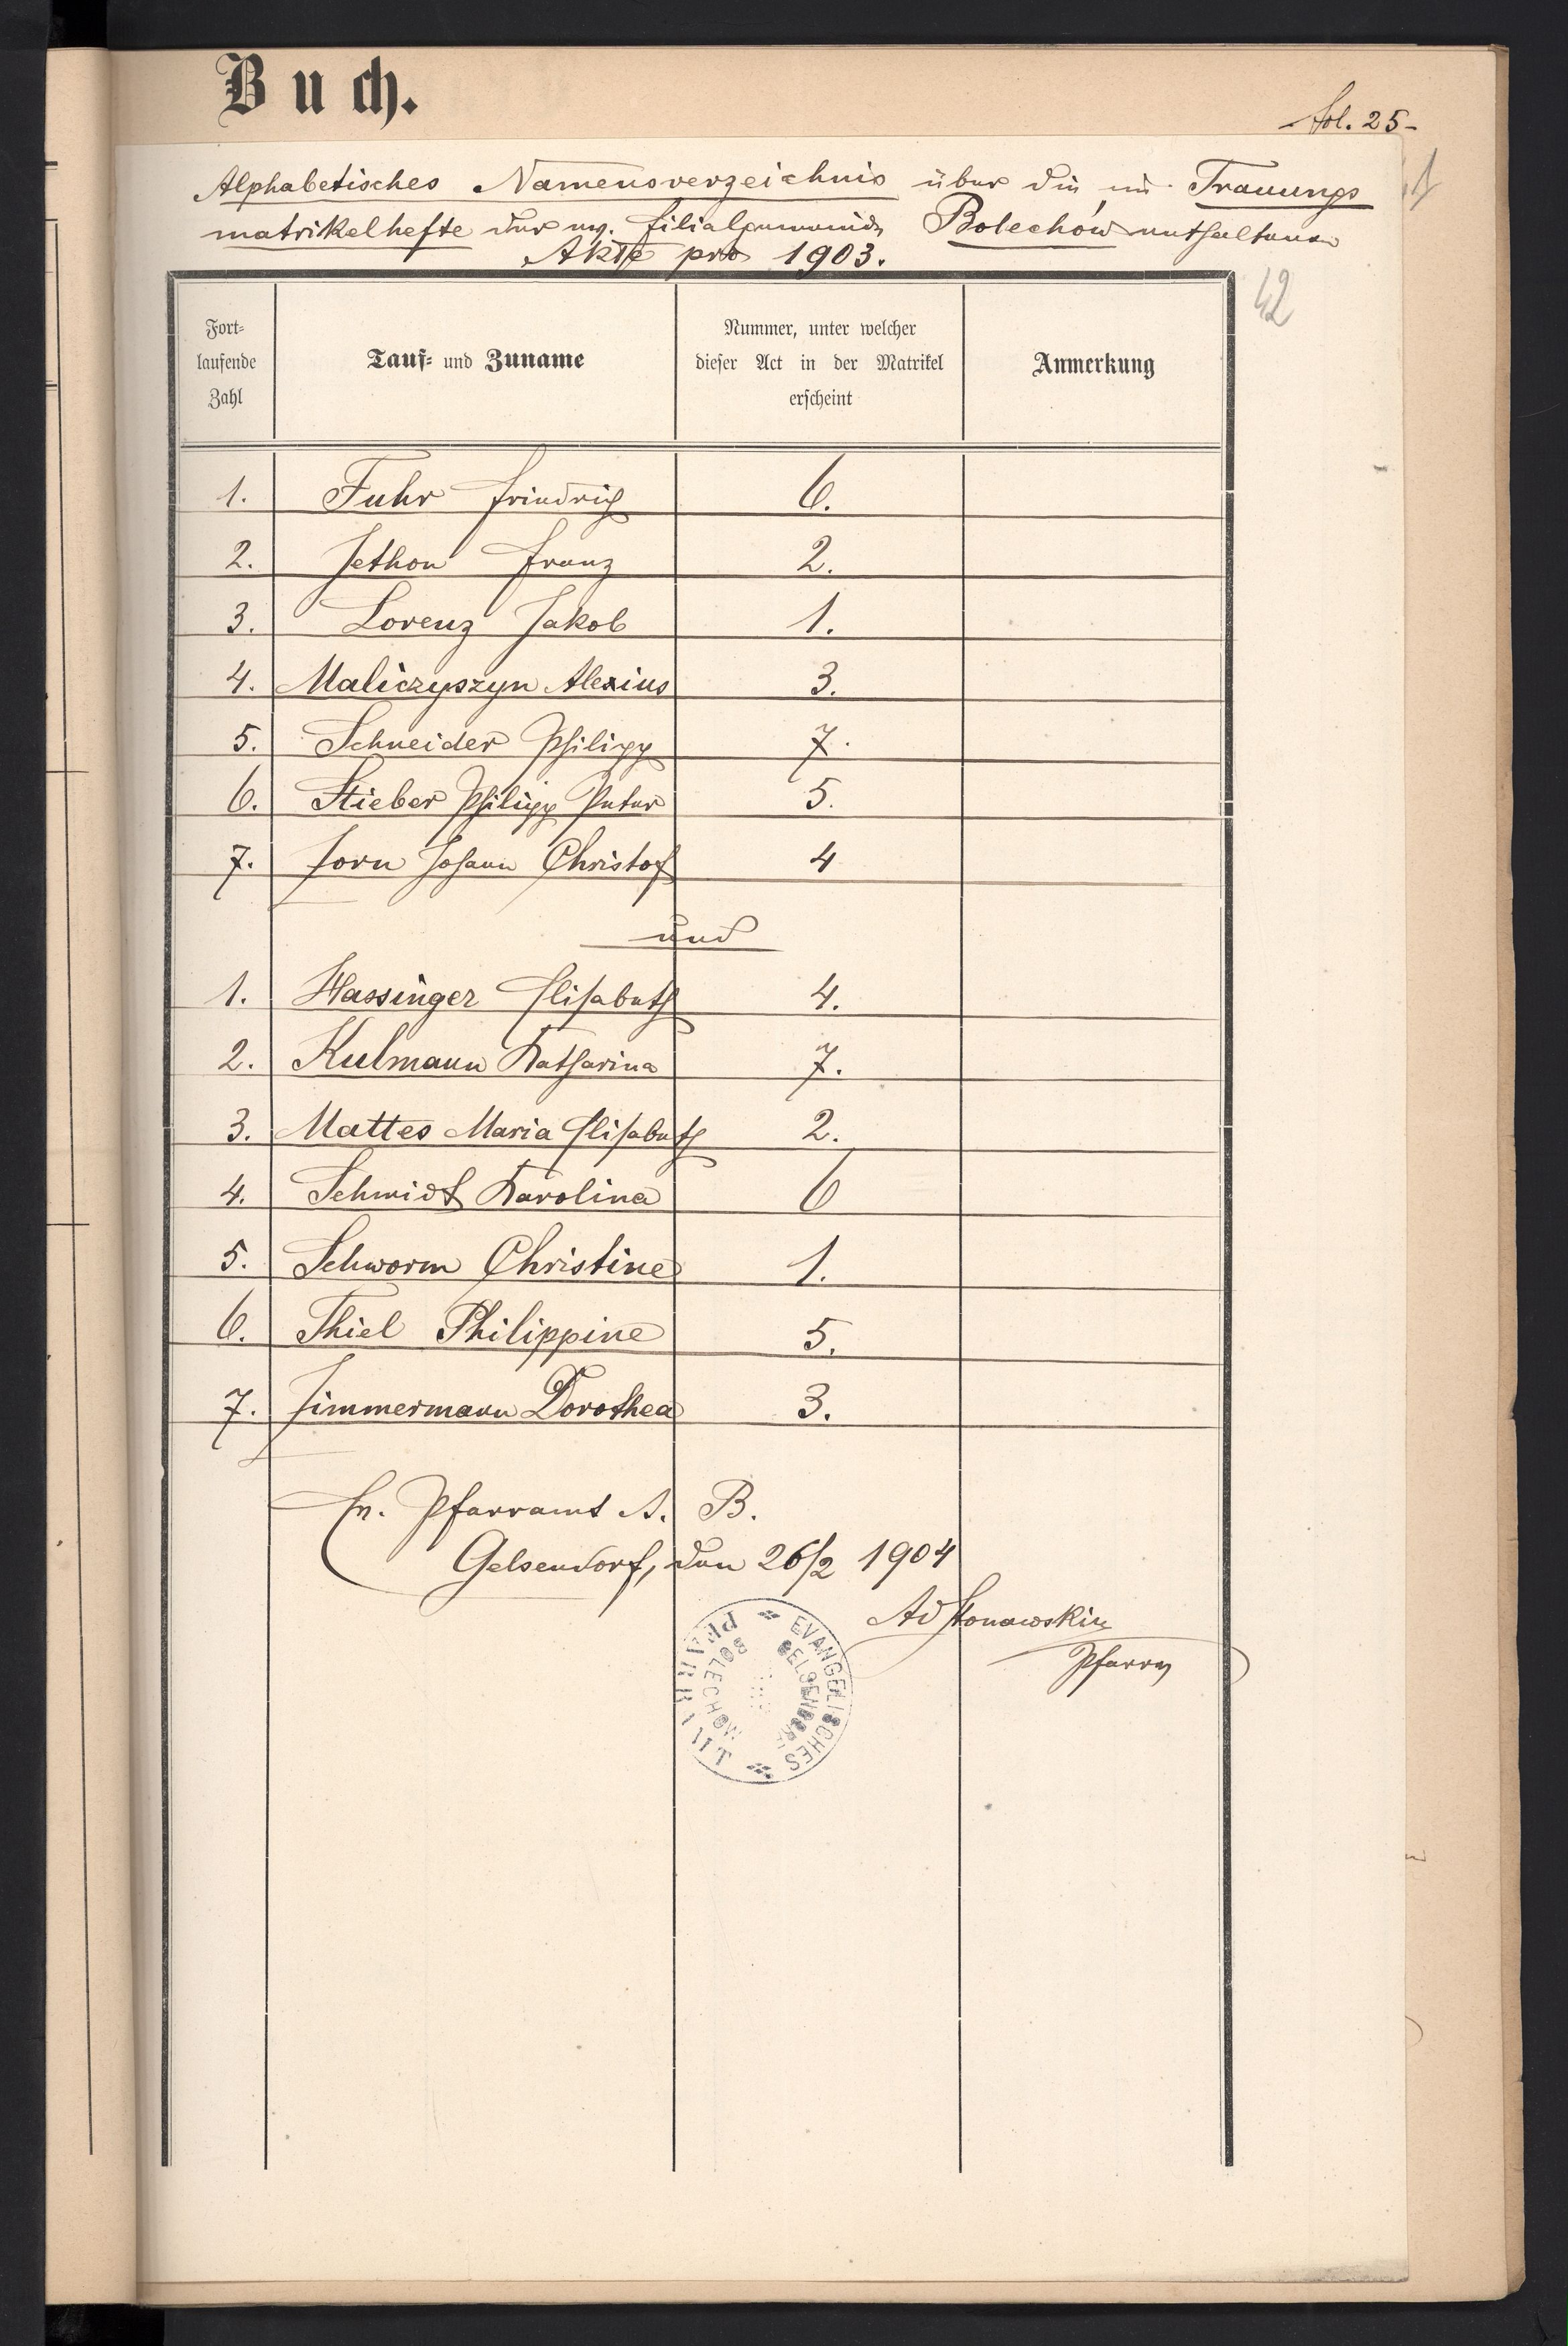 Buch.
fol. 25-
Alphabetisches Namensverzeichnis über die im Trauungs
matrikelhefte der ev. Filialgemeinde Bolechów enthaltenen
Akte pro 1903.
42
Fort-
laufende
Zahl
Tauf- und Zuname
Nummer, unter welcher
dieser Act in der Matrikel
erscheint
Anmerkung
1. Fuhr Friedrich 6.
2. Jethon Franz 2.
3. Lorenz Jakob 1.
4. Maliczyszyn Alexius 3.
5. Schneider Philipp 7.
6. Stieber Philipp Peter 5.
7. Zorn Johann Christof 4
und
1. Hassinger Elisabeth 4.
2. Kulmann Katharina 7.
3. Mattes Maria Elisabeth 2.
4. Schmidt Karolina 6
5. Schworm Christine 1.
6. Thiel Philippine 5.
7. Zimmermann Dorothea 3.
Ev. Pfarramt A. B.
Gelsendorf, den 26/2 1904
Pfarrer
EVANGELISCHES PFARRAMT
GELSENDORF
BOLECHOW